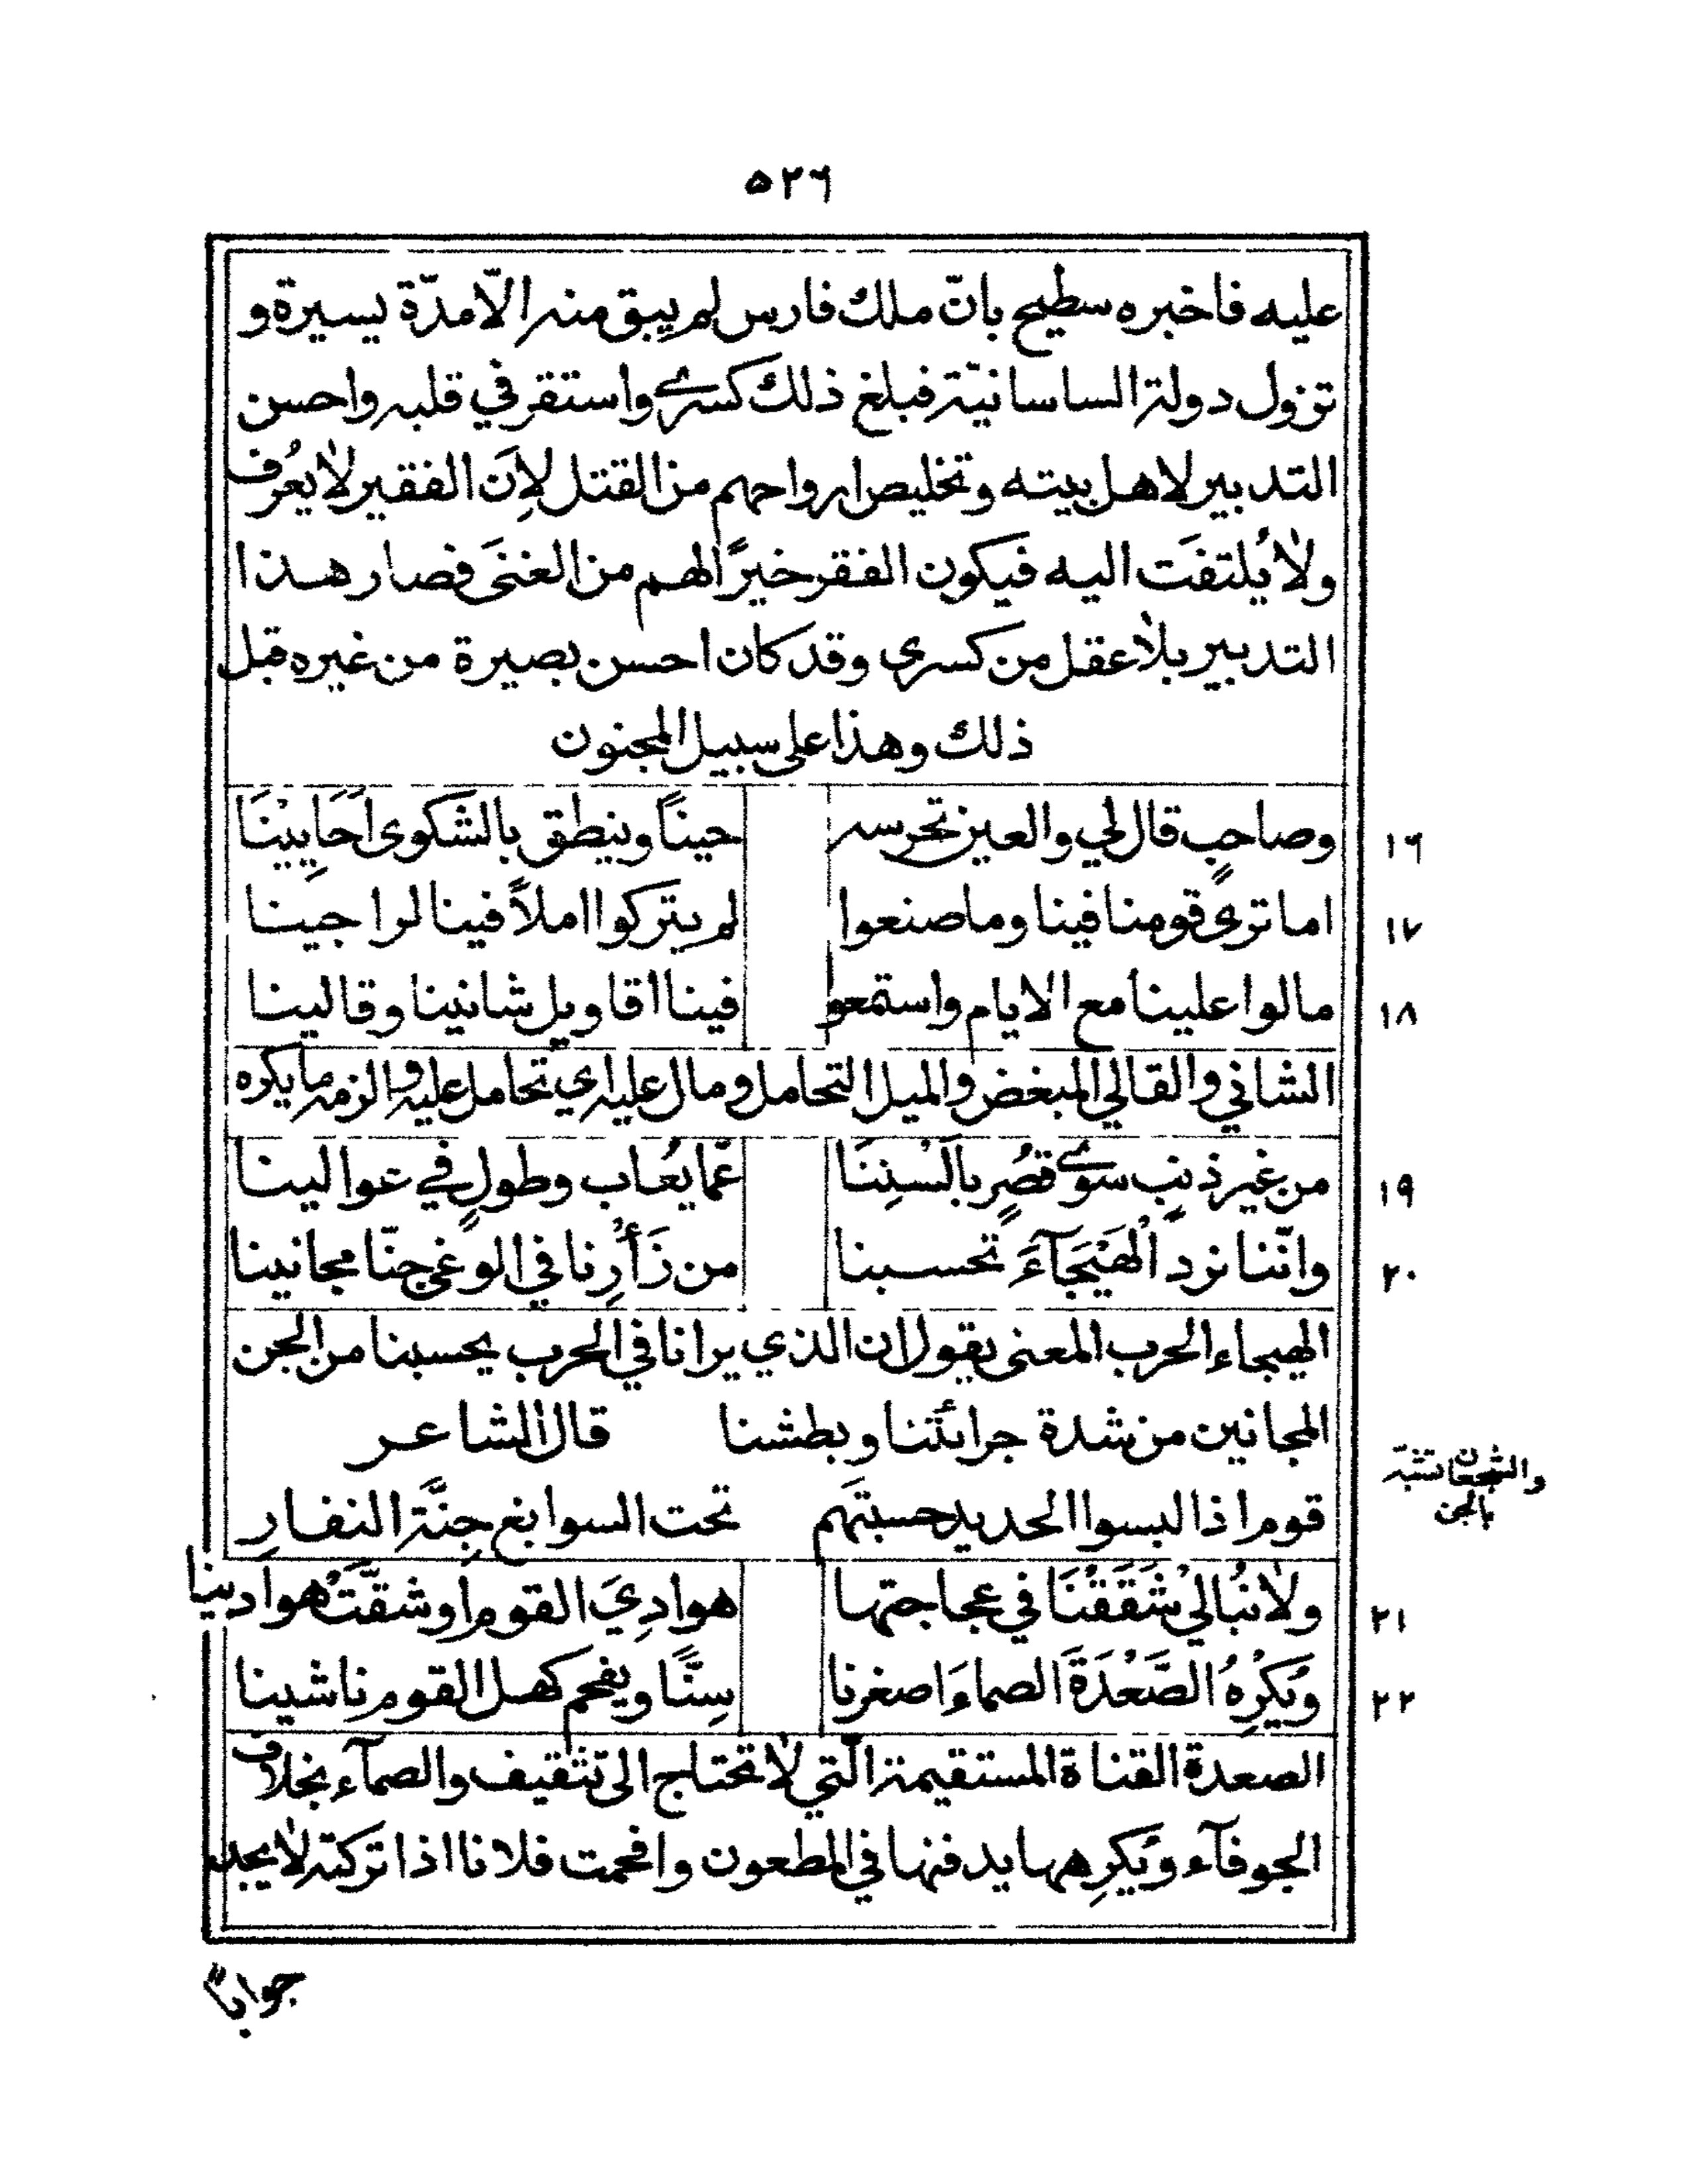 ٥٢٦
عليه فاخبره سطيح بانّ ملك فارس لم يبق منه الّا مدّة يسيرة و
تزول دولة الساسانيّة فبلغ ذلك كسرى واستقر في قلبه واحسن
التدبير لاهل بيته وتخليص ارواحهم من القتل لِاَن الفقير لا يعُرف
ولا يُلتفَت اليه فيكون الفقر خيرًا لهم من الغنَى فصار هذا
التدبير بلا عقل من كسرى وقد كان احسن بصيرة من غيره قبل
ذلك وهذا على سبيل المجنون
١٦ وصاحبٍ قال لي والعين تحرسه حينًا وينطق بالشكوى اَحَايِيْنَا
١٧ اما ترى قومنا فينا وما صنعوا لم يتركوا املاً فينا لراجينا
١٨ مالوا علينا مع الايام واستمعوا فينا اقاويل شانينا وقالينا
الشاني والقالي المبغض والميل التحامل ومال عليه اي تحامل عليه والزمه ما يكره
١٩ من غير ذنبٍ سوى قصُرٍ بالَسْنِنَا عمّا يُعاب وطولٍ في عوالينا
٢٠ وانّنا نرد الْهَيْجَآءَ تحسبنا من زَأْرِنا في الوغى جنّا مجانينا
الهيجاء الحرب المعنى يقول ان الذي يرانا في الحرب يحسبنا من الجن
المجانين من شدة جرائتنا وبطشنا قال الشاعر
والشجعان تشبّه
بالجن
قوم اذا لبسوا الحديد حسبتَهم تحت السوابغ جِنَّة النفارِ
٢١ ولا نُبالي شَقَقْنَا في عجاجتها هوادِيَ القوم او شقَّتْ هوادينا
٢٢ ويُكْرِهُ الصَّعْدَةَ الصماءَ اصغرنا سِنًّا ويفحم كهل القوم ناشينا
الصعدة القناة المستقيمة الّتي لا تحتاج الى تثقيف والصمآء بخلاف
الجوفآء ويُكرِهها يدفنها في المطعون وافحمت فلانا اذا تركته لا يجد
جواباً